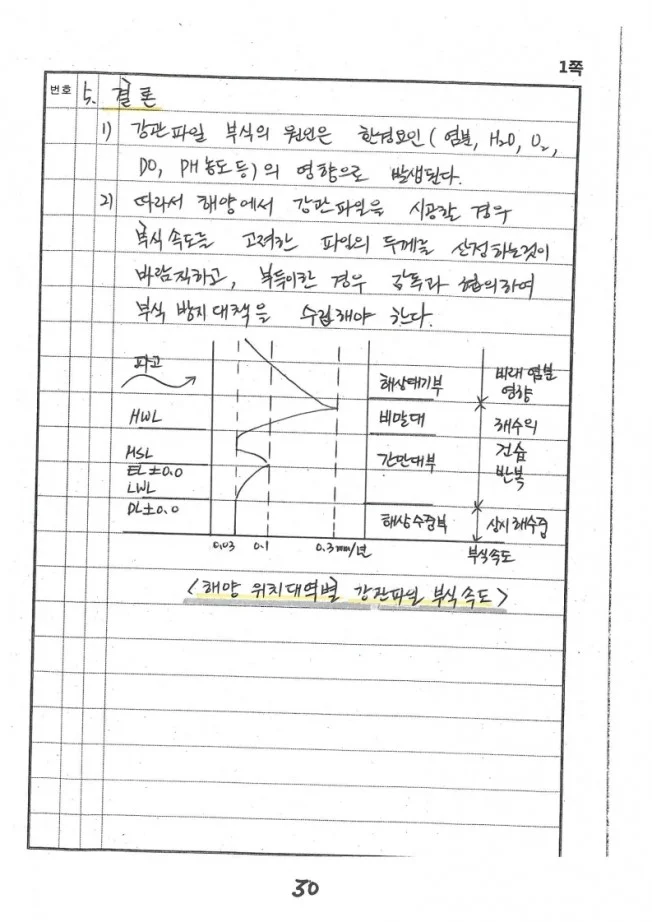 1쪽
번호
5. 결론
1) 강관파일 부식의 원인은 환경요인(염분, H2O, O2,
DO, PH농도 등)의 영향으로 발생된다.
2) 따라서 해양에서 강관파일을 시공할 경우
부식속도를 고려한 파일의 두께를 산정하는것이
바람직하고, 부득이한 경우 감독과 협의하여
부식 방지대책을 수립해야 한다.
파고
HWL
MSL
EL±0.0
LWL
DL±0.0
해상대기부
비말대
간만대부
해상수중부
비래염분
영향
해수의
건습
반복
상시해수중
0.03 0.1 0.3mm/년
부식속도
<해양 위치대역별 강관파일 부식속도>
30